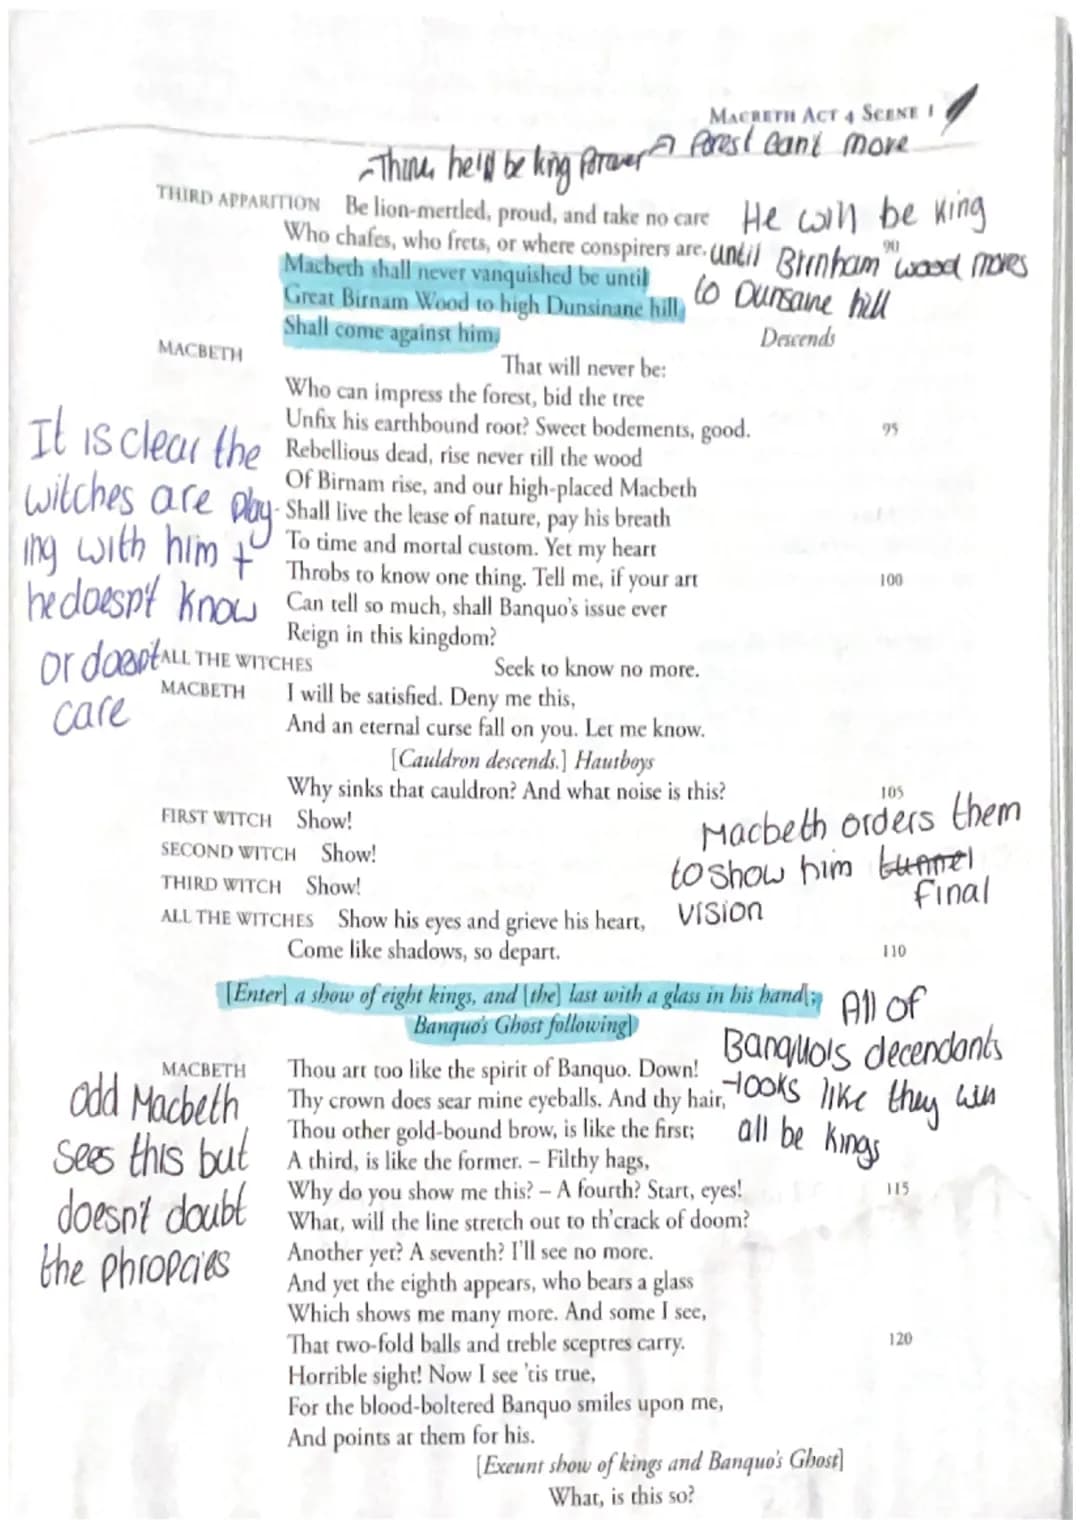 MACBETH ACT 4 SCENE 1
-Think he'll be king forever → forest can't move
THIRD APPARITION Be lion-mettled, proud, and take no care
He will be king
Who chafes, who frets, or where conspirers are. 90
until Birnham wood moves
Macbeth shall never vanquished be until
Great Birnam Wood to high Dunsinane hill
to Dunsane hill
Shall come against him.
Descends
MACBETH That will never be:
Who can impress the forest, bid the tree
Unfix his earthbound root? Sweet bodements, good. 95
Rebellious dead, rise never till the wood
Of Birnam rise, and our high-placed Macbeth
Shall live the lease of nature, pay his breath
To time and mortal custom. Yet my heart
Throbs to know one thing. Tell me, if your art 100
Can tell so much, shall Banquo's issue ever
Reign in this kingdom?
It is clear the
witches are play-
ing with him +
he doesn't know
or doesnt
care
ALL THE WITCHES Seek to know no more.
MACBETH I will be satisfied. Deny me this,
And an eternal curse fall on you. Let me know.
[Cauldron descends.] Hautboys
Why sinks that cauldron? And what noise is this? 105
FIRST WITCH Show!
SECOND WITCH Show!
THIRD WITCH Show!
Macbeth orders them
to show him tunnel
final
vision
ALL THE WITCHES Show his eyes and grieve his heart,
Come like shadows, so depart. 110
[Enter] a show of eight kings, and [the] last with a glass in his hand[;
Banquo's Ghost following]
All of
Banquo's decendants
-looks like they will
all be kings
MACBETH Thou art too like the spirit of Banquo. Down!
Thy crown does sear mine eyeballs. And thy hair,
Thou other gold-bound brow, is like the first;
A third, is like the former. – Filthy hags,
Why do you show me this? – A fourth? Start, eyes! 115
What, will the line stretch out to th'crack of doom?
Another yet? A seventh? I'll see no more.
And yet the eighth appears, who bears a glass
Which shows me many more. And some I see,
That two-fold balls and treble sceptres carry. 120
Horrible sight! Now I see 'tis true,
For the blood-boltered Banquo smiles upon me,
And points at them for his.
odd Macbeth
sees this but
doesn't doubt
the phropcies
[Exeunt show of kings and Banquo's Ghost]
What, is this so?